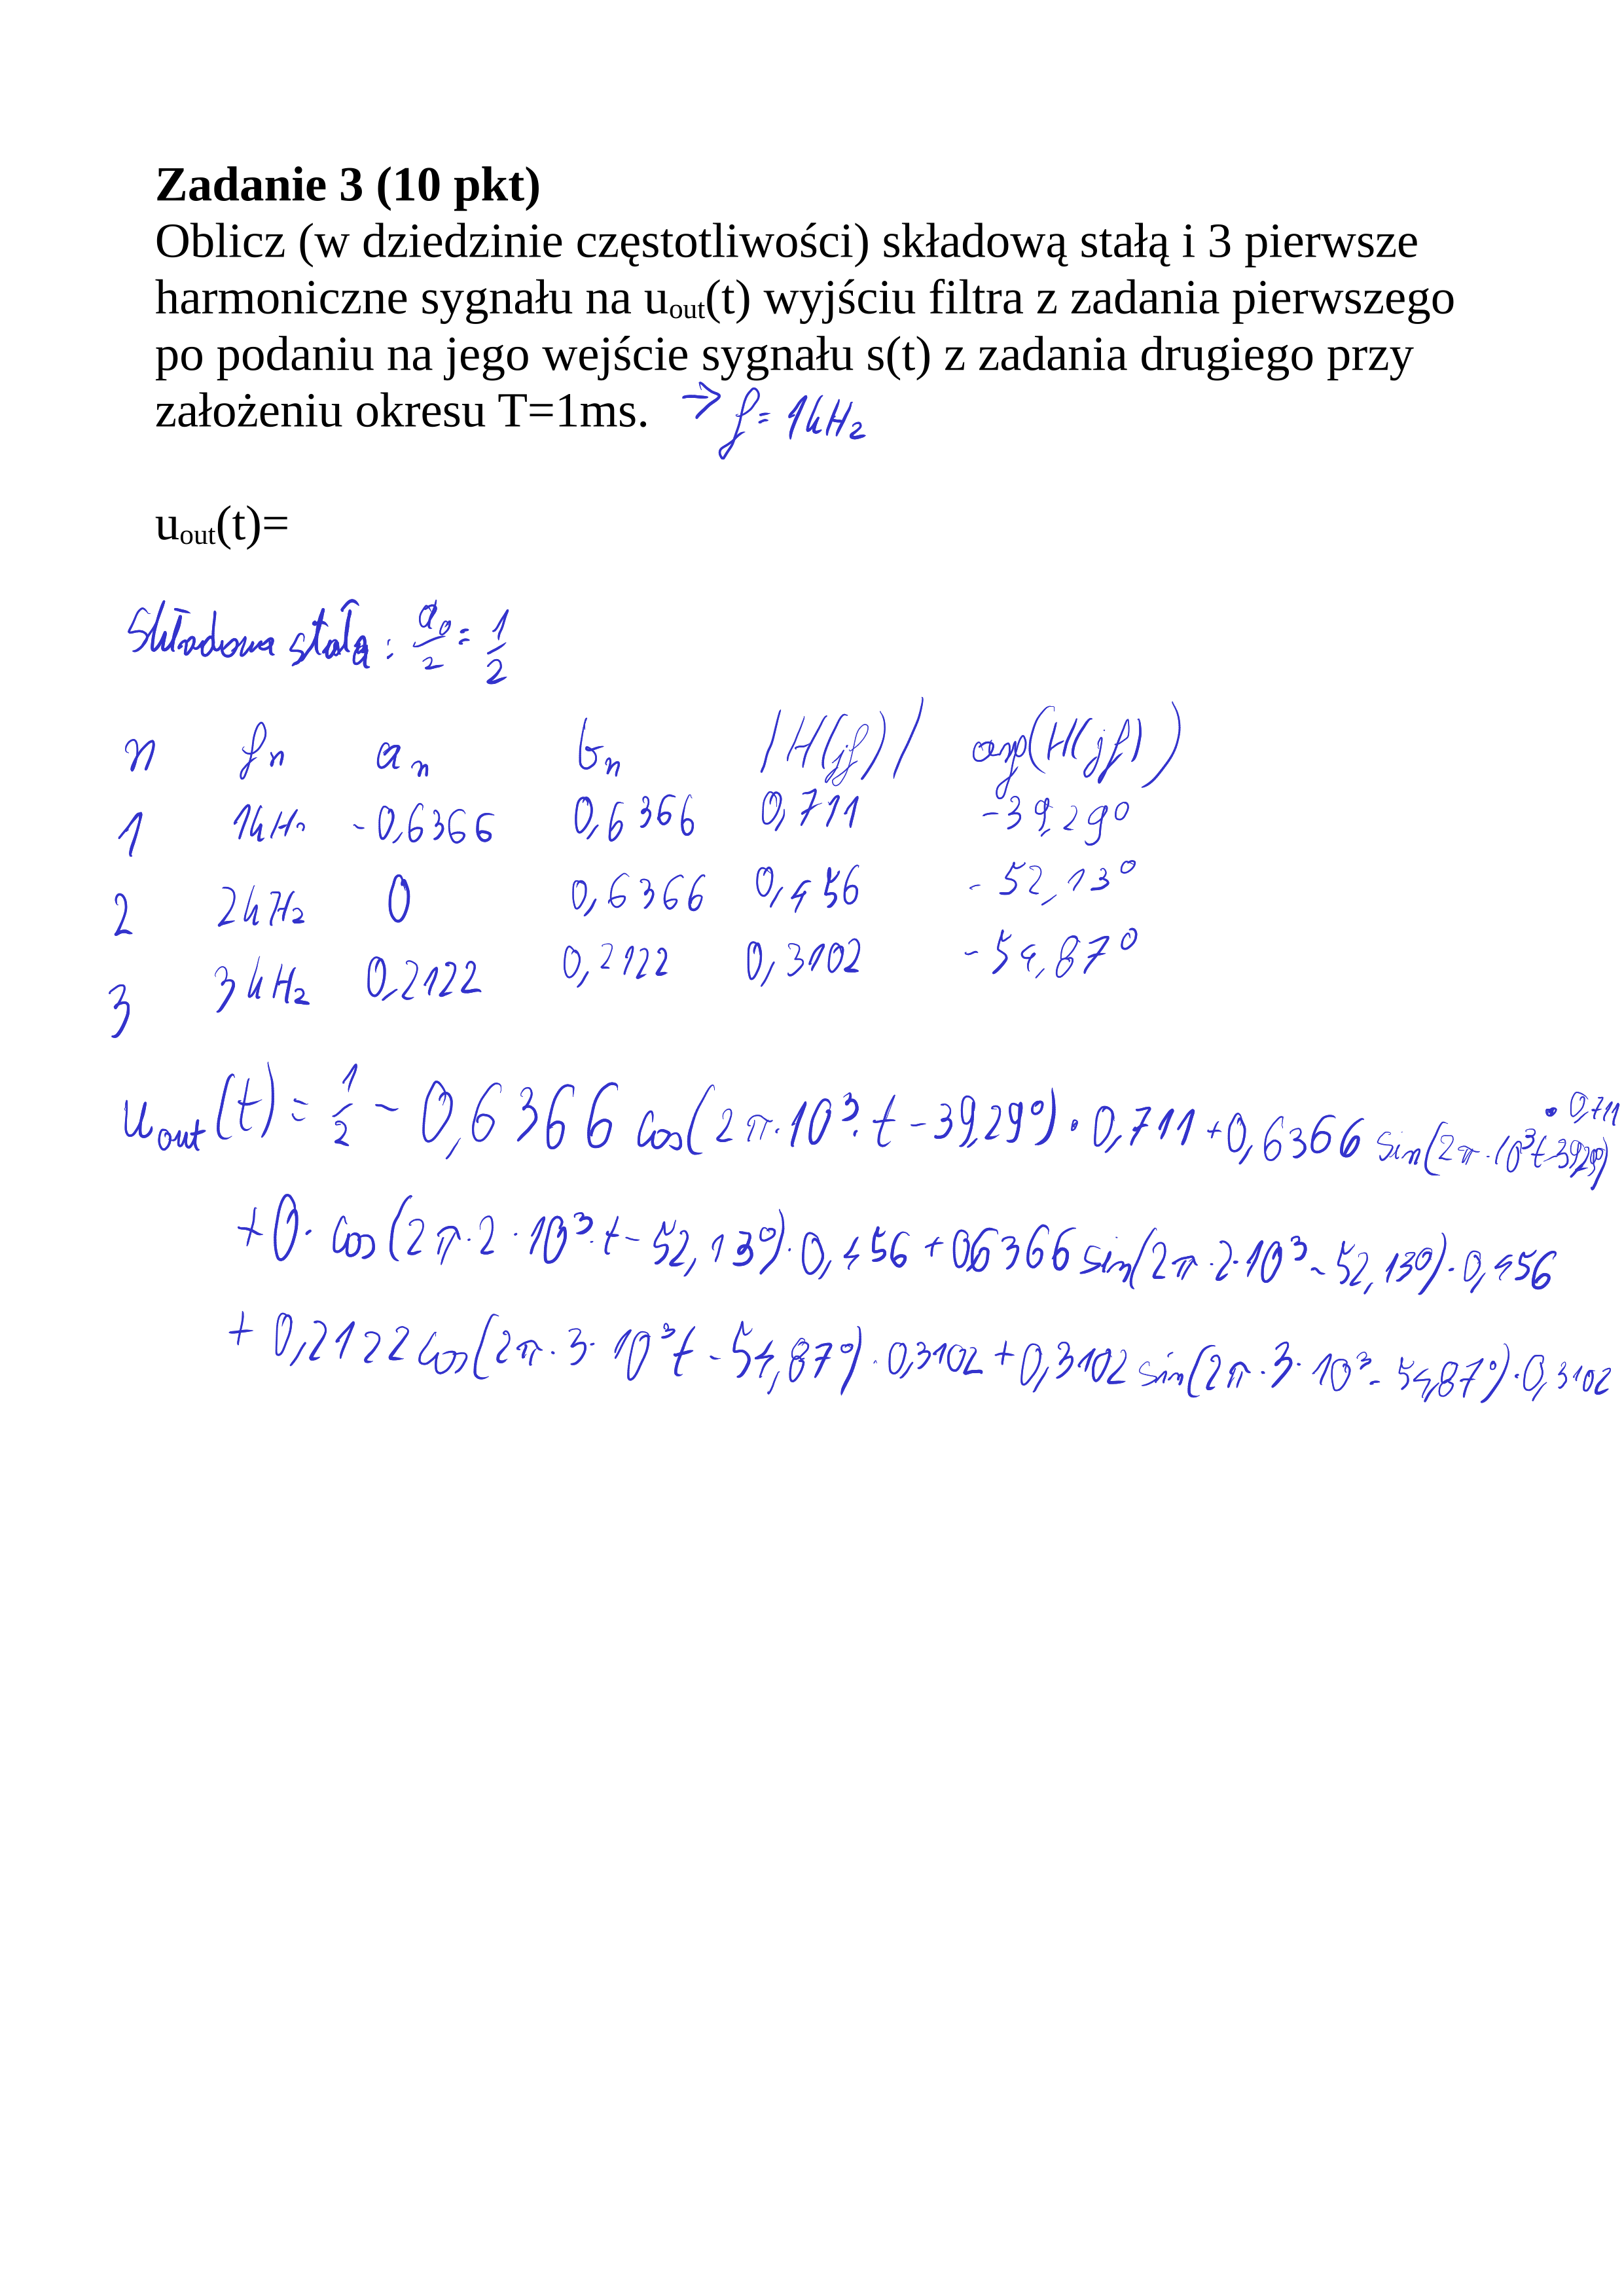 Zadanie 3 (10 pkt)
Oblicz (w dziedzinie częstotliwości) składową stałą i 3 pierwsze
harmoniczne sygnału na uout(t) wyjściu filtra z zadania pierwszego
po podaniu na jego wejście sygnału s(t) z zadania drugiego przy
założeniu okresu T=1ms. → f = 1kHz
uout(t)=
Składowa stała : a0/2 = 1/2
n fn an bn |H(jf)| arg(H(jf))
1 1kHz -0,6366 0,6366 0,711 -39,29°
2 2kHz 0 0,6366 0,456 -52,13°
3 3kHz 0,2122 0,2122 0,3102 -54,87°
uout(t) = 1/2 - 0,6366 cos(2π·10³·t - 39,29°) · 0,711 + 0,6366 sin(2π·10³t-39,29°) · 0,711
+ 0· cos(2π·2·10³·t - 52,13°)·0,456 + 06366 sin(2π·2·10³ - 52,13°)·0,456
+ 0,2122 cos(2π·3·10³t - 54,87°)·0,3102 + 0,3102 sin(2π·3·10³ - 54,87°)·0,3102